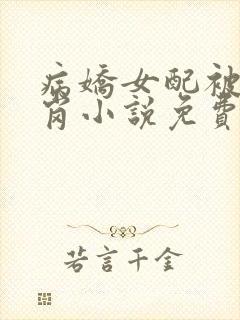 病嬌女配被
肖小說免費
若言千金